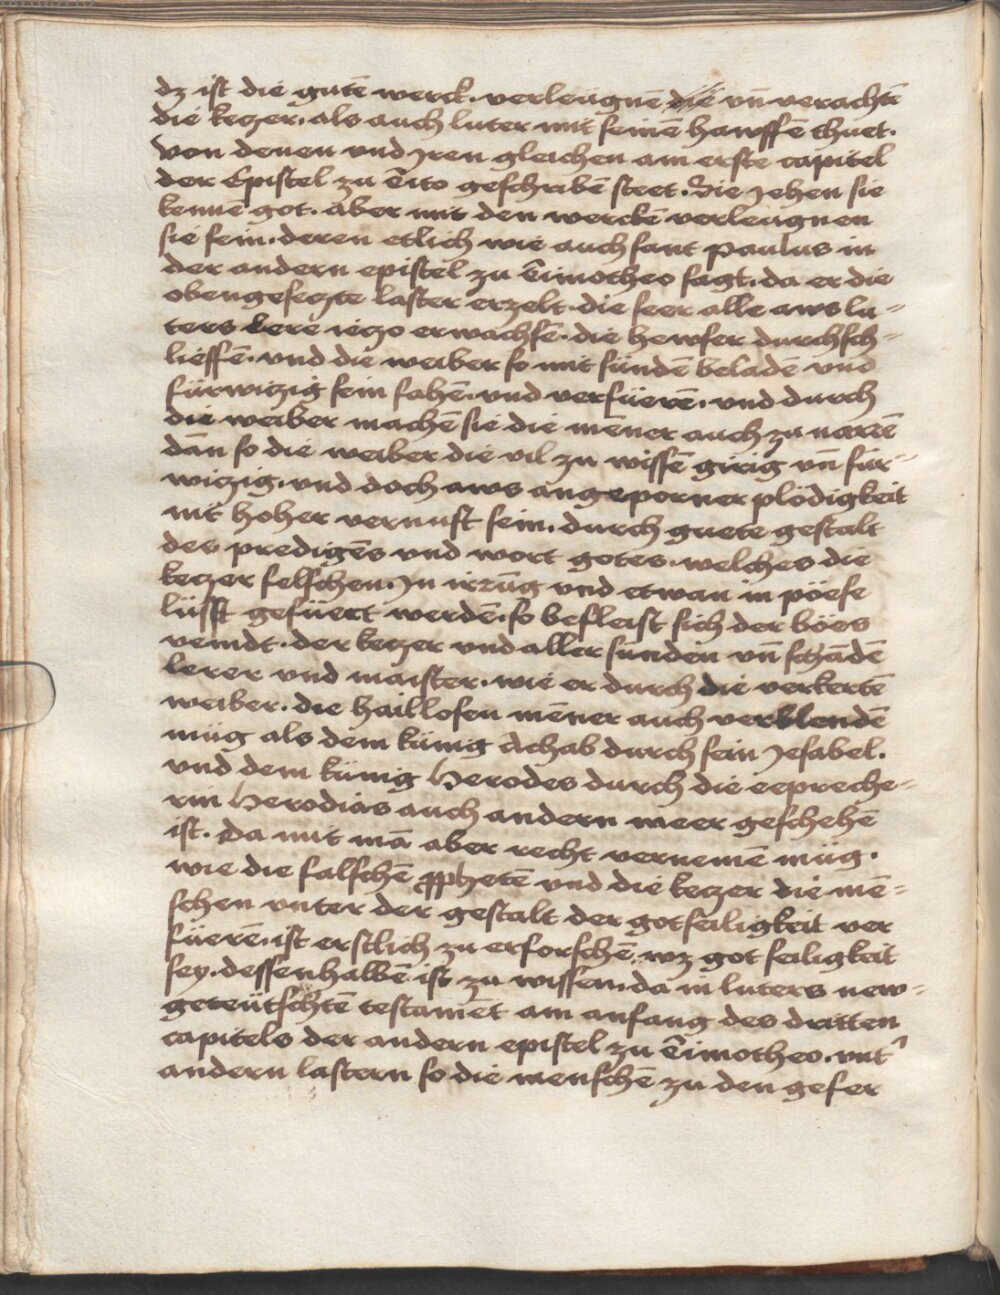 dz ist die gutē werck. verleugnē die vn̄ verachtē
die kezer. als auch luter mit seinē hawffē thuet.
Von denen vnd Jren gleichen am erste capitel
der Epistel zu Tito geschribē steet. Sie Jehen sie
kennē got. aber mit den werckē verleugnen
sie sein. deren etlich wie auch sant paulus in
der andern epistel zu Timotheo sagt. da er die
obengesezte laster erzelt. die seer alle aws lu-
ters lere iezo erwachsē. die hewser durchsch-
lieffē. vnd die weiber so mit sündē beladē vnd
fürwizig sein fahē. vnd verfüerē. vnd durch
die weiber machē sie die mēner auch zu narrē
dan̄ so die weiber die vil zu wissē girig vn̄ für-
wizig. vnd doch aws angeporner plödigkeit
nit hoher vernuft sein. durch guete gestalt
des predigēs vnd wort gotes. welches die
kezer felschen. Jn irzūg vnd etwan in pöese
lüsst gefüert werdē. so befleist sich der böes
veindt. der kezer vnd aller sünden vn̄ schādē
lerer vnd maister. wie er durch die verkertē
weiber. die haillosen mēner auch verblendē
müg als dem künig Achab durch sein Jesabel.
vnd dem künig Herodes durch die eepreche-
rin Herodias auch andern meer geschehē
ist. Da mit mā aber recht vernemē müg.
wie die falschē ꝓphetē vnd die kezer die mē-
schen vnter der gestalt der gotseiligkeit ver
füerē. ist erstlich zu erforschē. wz got seiligkeit
sey. dessenhalbē ist zu wissen. da in luters new-
geteütschtē testamēt am anfang des dritten
capitels der andern epistel zu Timotheo. vnt'
andern lastern so die menschē zu den gefer